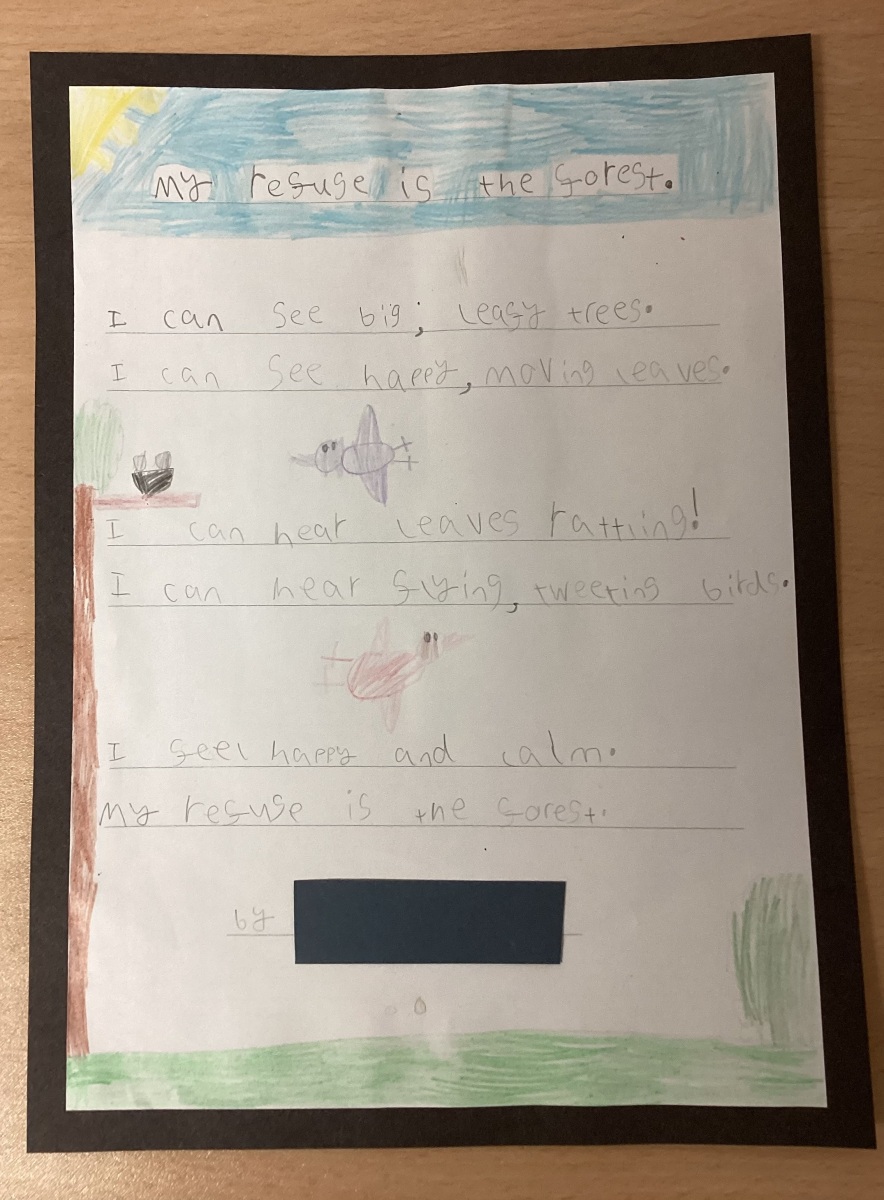 My refuge is the forest.
I can see big, leafy trees.
I can see happy, moving leaves.
I can hear leaves rattling!
I can hear flying, tweeting birds.
I feel happy and calm.
My refuge is the forest.
by